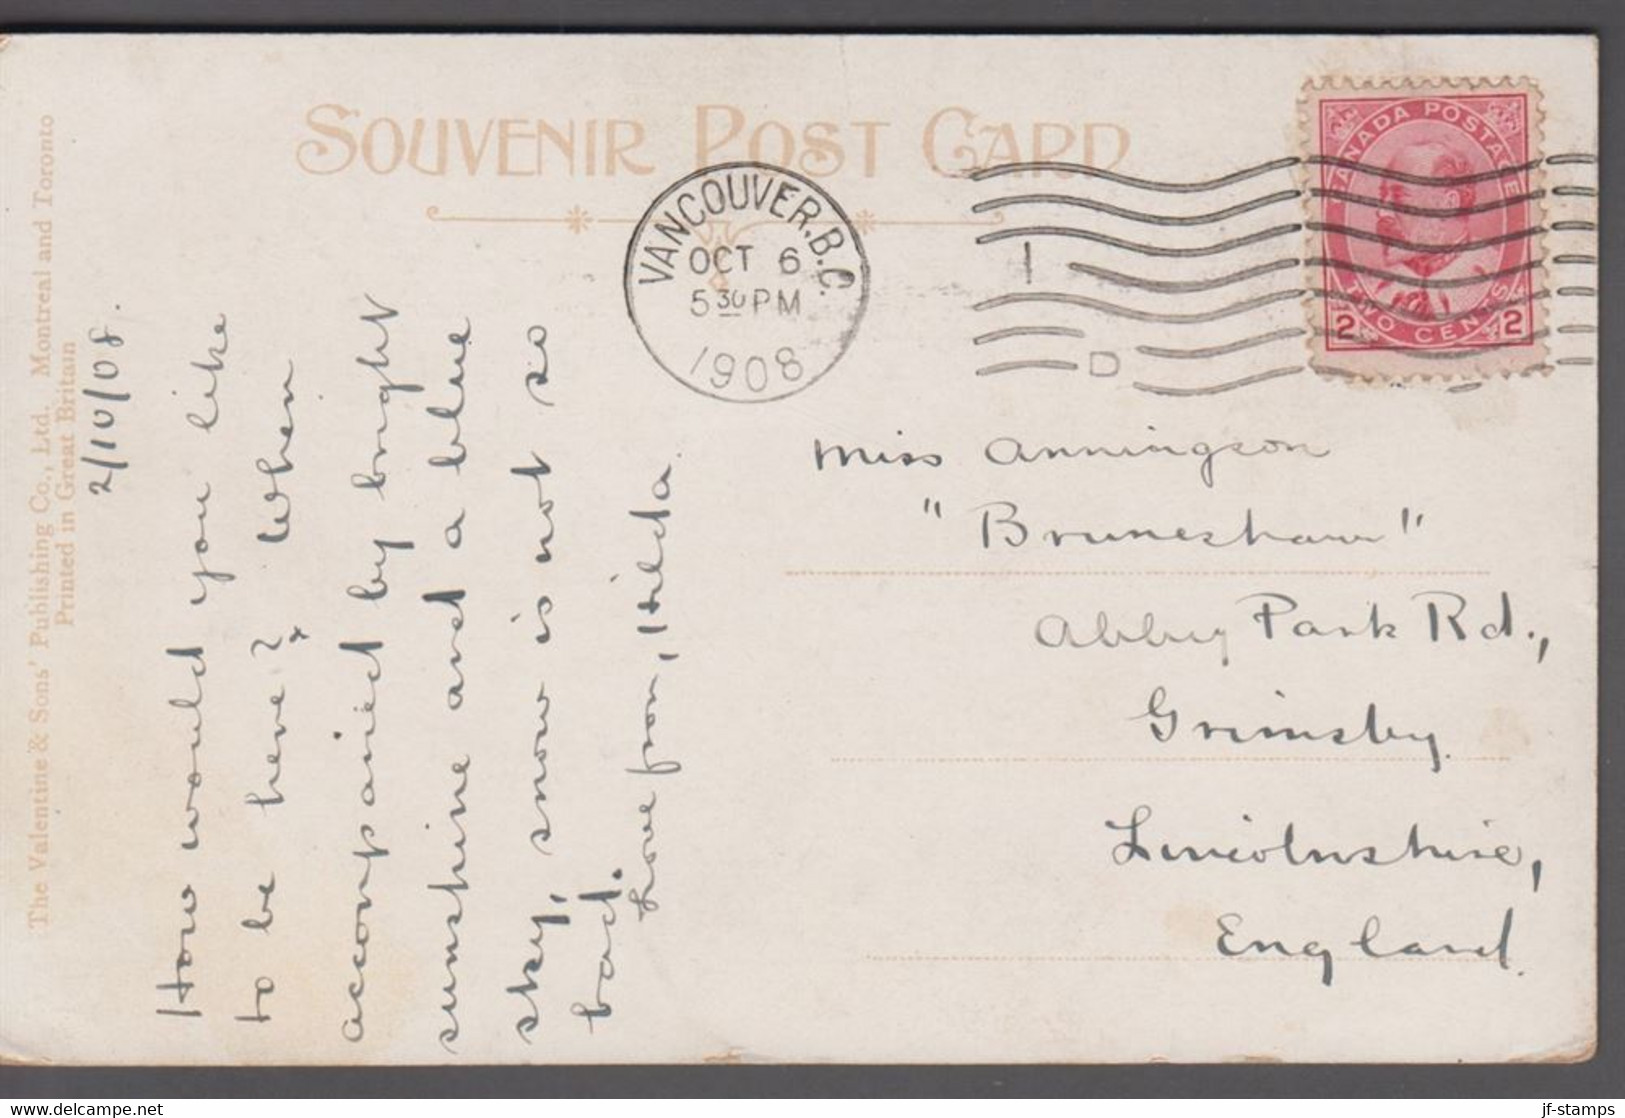 SOUVENIR POST CARD
VANCOUVER. B.C.
OCT 6
5 30 PM
1908
1
D
CANADA POSTAGE
2 TWO CENTS 2
The Valentine & Sons' Publishing Co., Ltd. Montreal and Toronto
Printed in Great Britain
2/10/08.
How would you like
to be here? When
accompanied by bright
sunshine and a blue
sky, snow is not so
bad.
Love from, Hilda.
Miss Anningson
"Bruneshaw"
Abbey Park Rd.,
Grimsby.
Lincolnshire,
England.
jf-stamps
www.delcampe.net